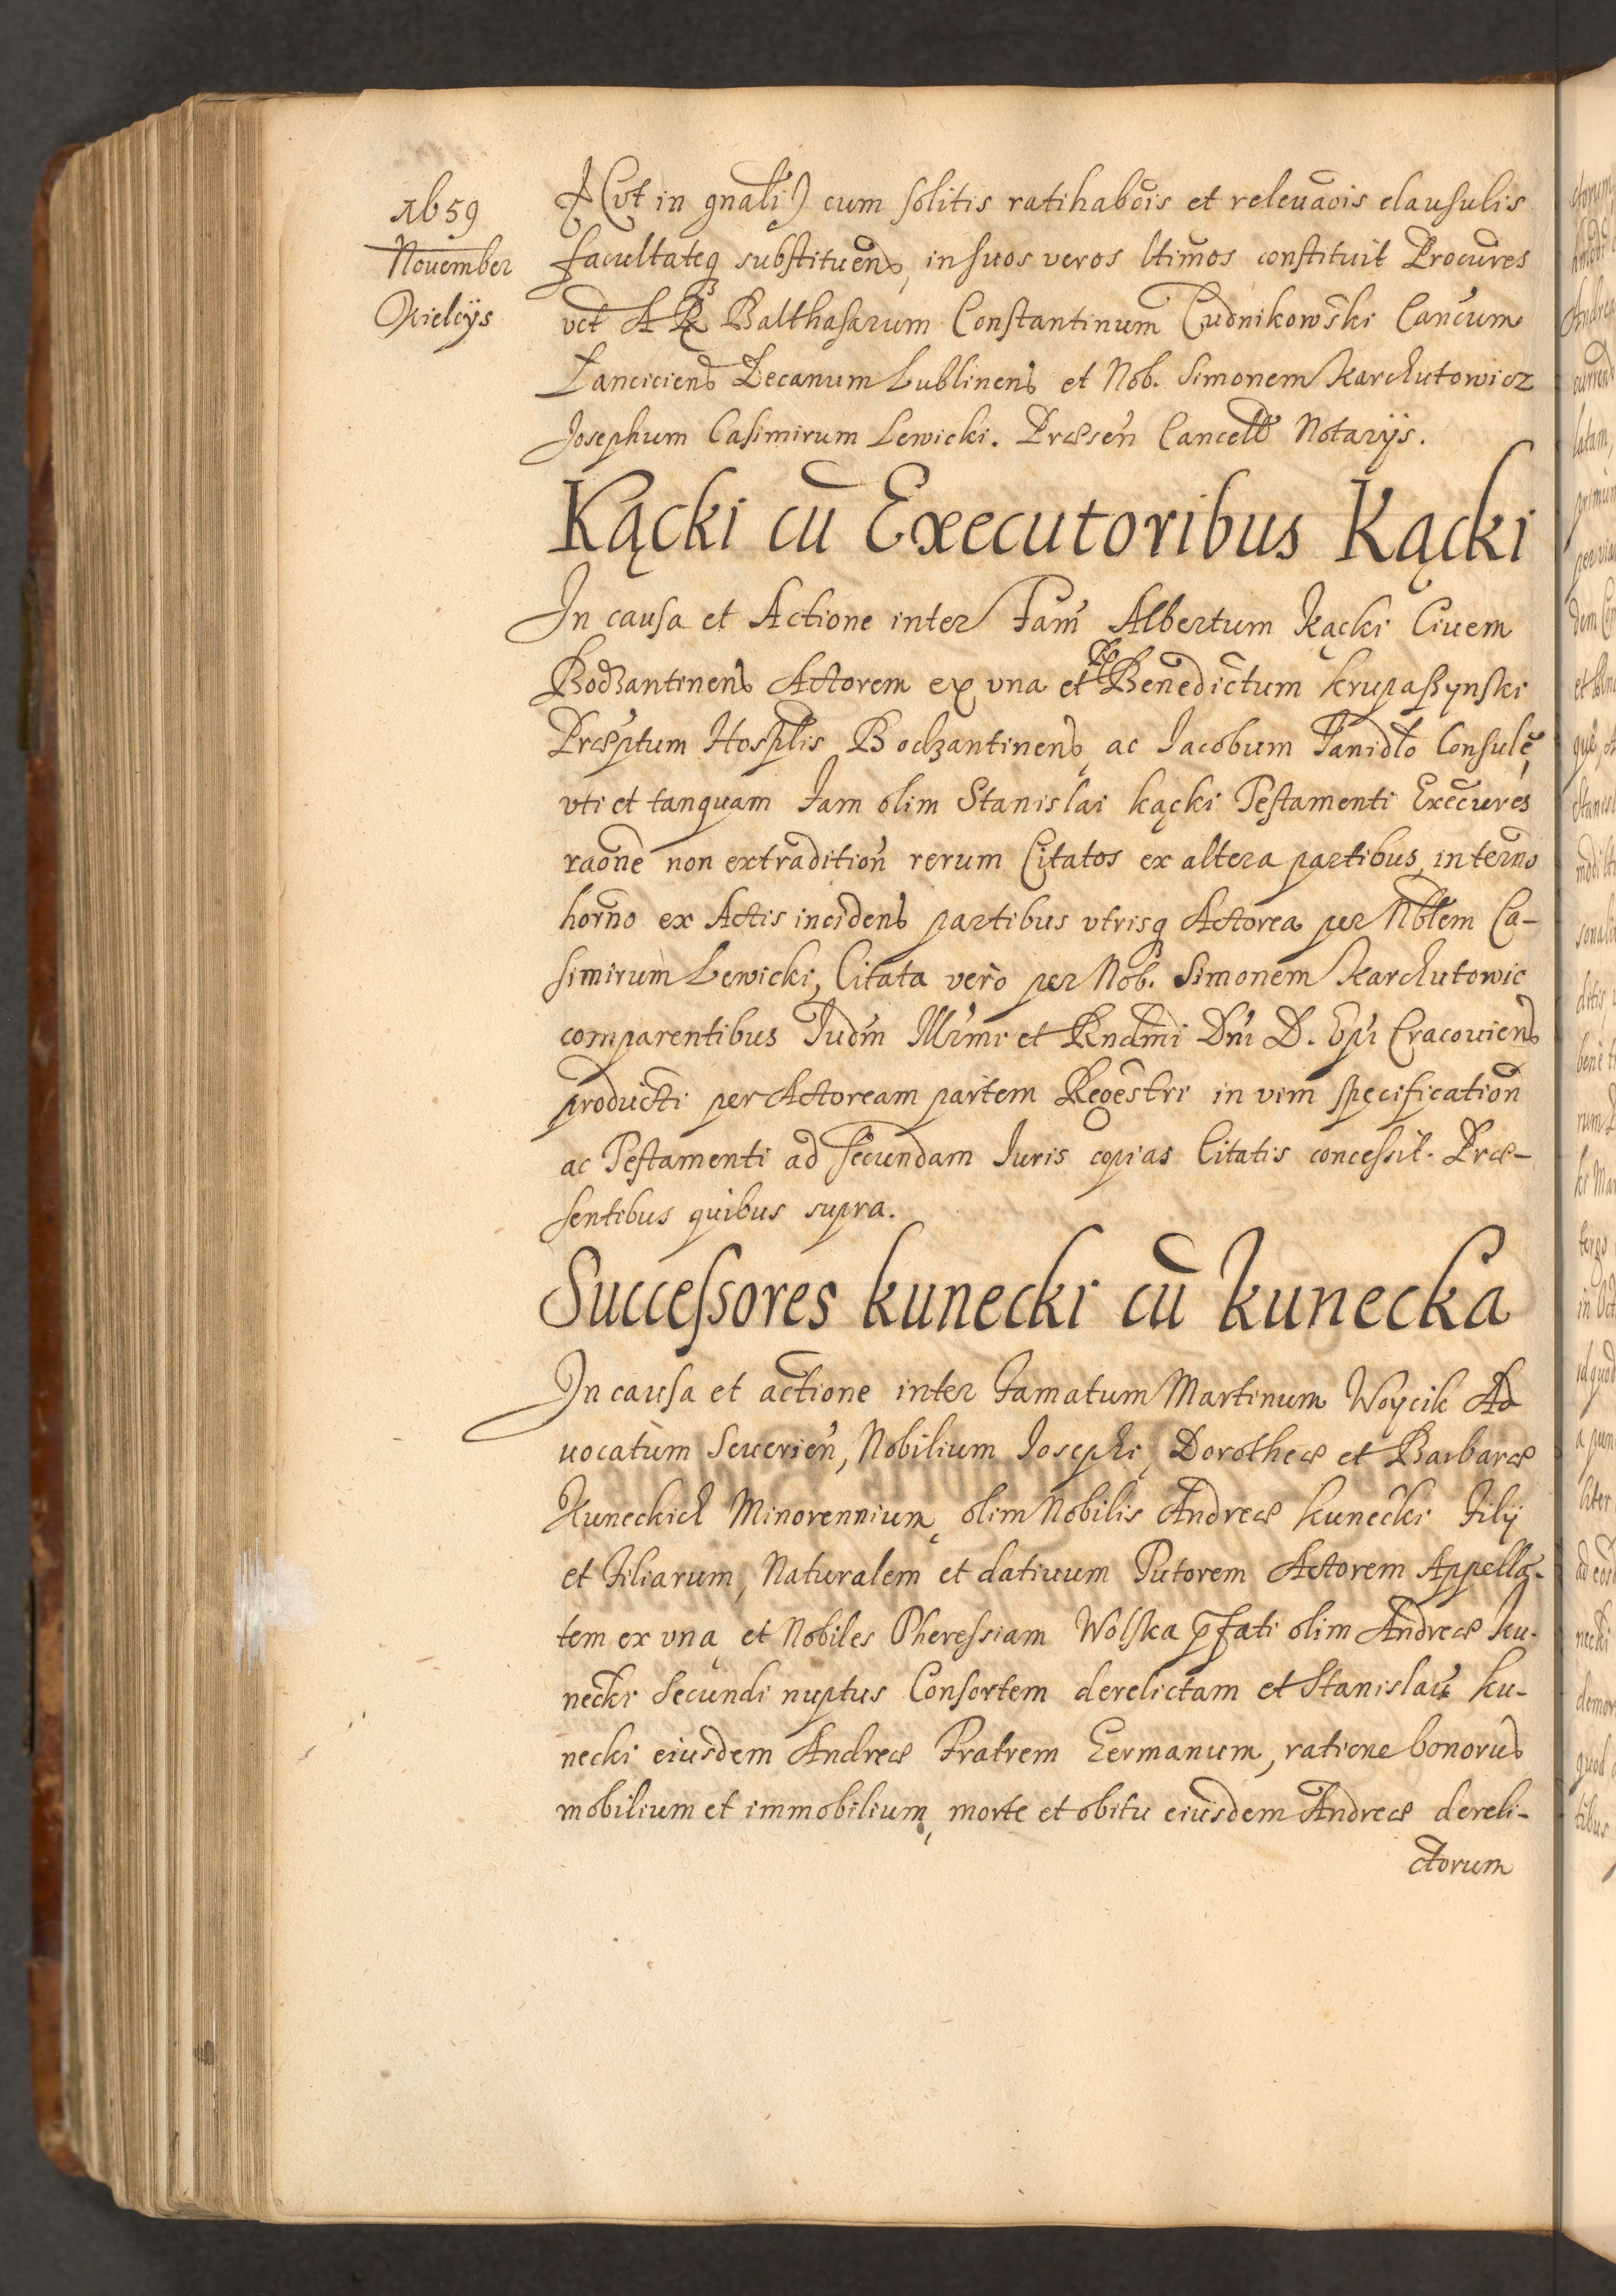 1659
November
Kielcijs
& (vt in gnali) cum solitis ratihabois et releuaois clausulis
facultateq substituens, in suos veros ltimos constituit Procures
vct A R Balthasarum Constantinum Cudnikowski Cancum
Lanciciens Decanum Lublinens et Nob. Simonem Karchutowicz
Josephum Casimirum Lewicki. Præsen Cancell Notarijs.
Kącki cū Executoribus Kącki
In causa et Actione inter Fam Albertum Kącki Ciuem
Bodzantinens Actorem ex vna et R Benedictum Krupaszynski
Præptum Hosplis Bodzantinens, ac Iacobum Fanidło Consulē,
vti et tanquam Fam olim Stanislai Kącki Testamenti Execures
raone non extradition rerum Citatos ex altera partibus, in terno
horno ex Actis incidens partibus vtrisq Actorea per Nblem Ca-
simirum Lewicki, Citata vero per Nob. Simonem Karchutowic
comparentibus Iudm Illrmi et Rndmi Dni D. Epi Cracouiens
producti per Actoream partem Regestri in vim specification
ac Testamenti ad secundam Iuris copias Citatis concessit. Præ-
sentibus quibus supra.
Successores Kunecki cū Kunecka
In causa et actione inter Famatum Martinum Woycik Ad
uocatum Seuerien, Nobilium Josephi, Dorotheæ et Barbaræ
Kuneckich Minorennium, olim Nobilis Andreæ Kunecki Filij
et Filiarum, Naturalem et datiuum Tutorem Actorem Appellā-
tem ex vna, et Nobiles Theressiam Wolska pfati olim Andreæ Ku-
necki Secundi nuptus Consortem derelictam et Stanislaū Ku-
necki eiusdem Andreæ Fratrem Germanum, ratione bonorum
mobilium et immobilium, morte et obitu eiusdem Andreæ dereli-
ctorum